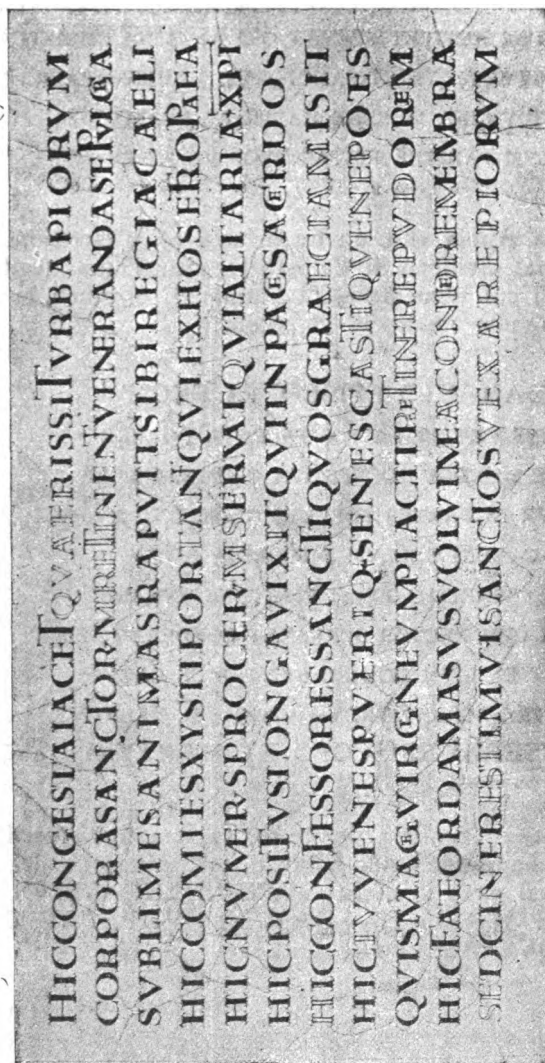 HICCONGESTAIACETQVAERISSITVRBAPIORVM
CORPORASANCTORVMRETINENTVENERANDASEPVLCRA
SVBLIMESANIMASRAPVITSIBIREGIACAELI
HICCOMITESXYSTIPORTANTQVIEXHOSTETROPAEA
HICNVMERVSPROCERVMSERVATQVIALTARIA·XPI
HICPOSITVSLONGAVIXITQVIINPACESACERDOS
HICCONFESSORESSANCTIQVOSGRAECIAMISIT
HICIVVENESPVERIQ·SENESCASTIQVENEPOTES
QVISMAGEVIRGINEVMPLACVITRETINEREPVDOREM
HICFATEORDAMASVSVOLVIMEACONDEREMEMBRA
SEDCINERESTIMVISANCTOSVEXAREPIORVM